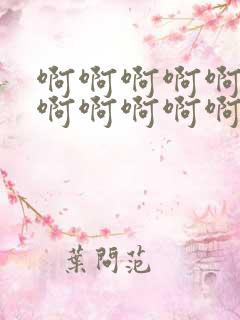 啊啊啊啊啊
啊啊啊啊啊
葉問范